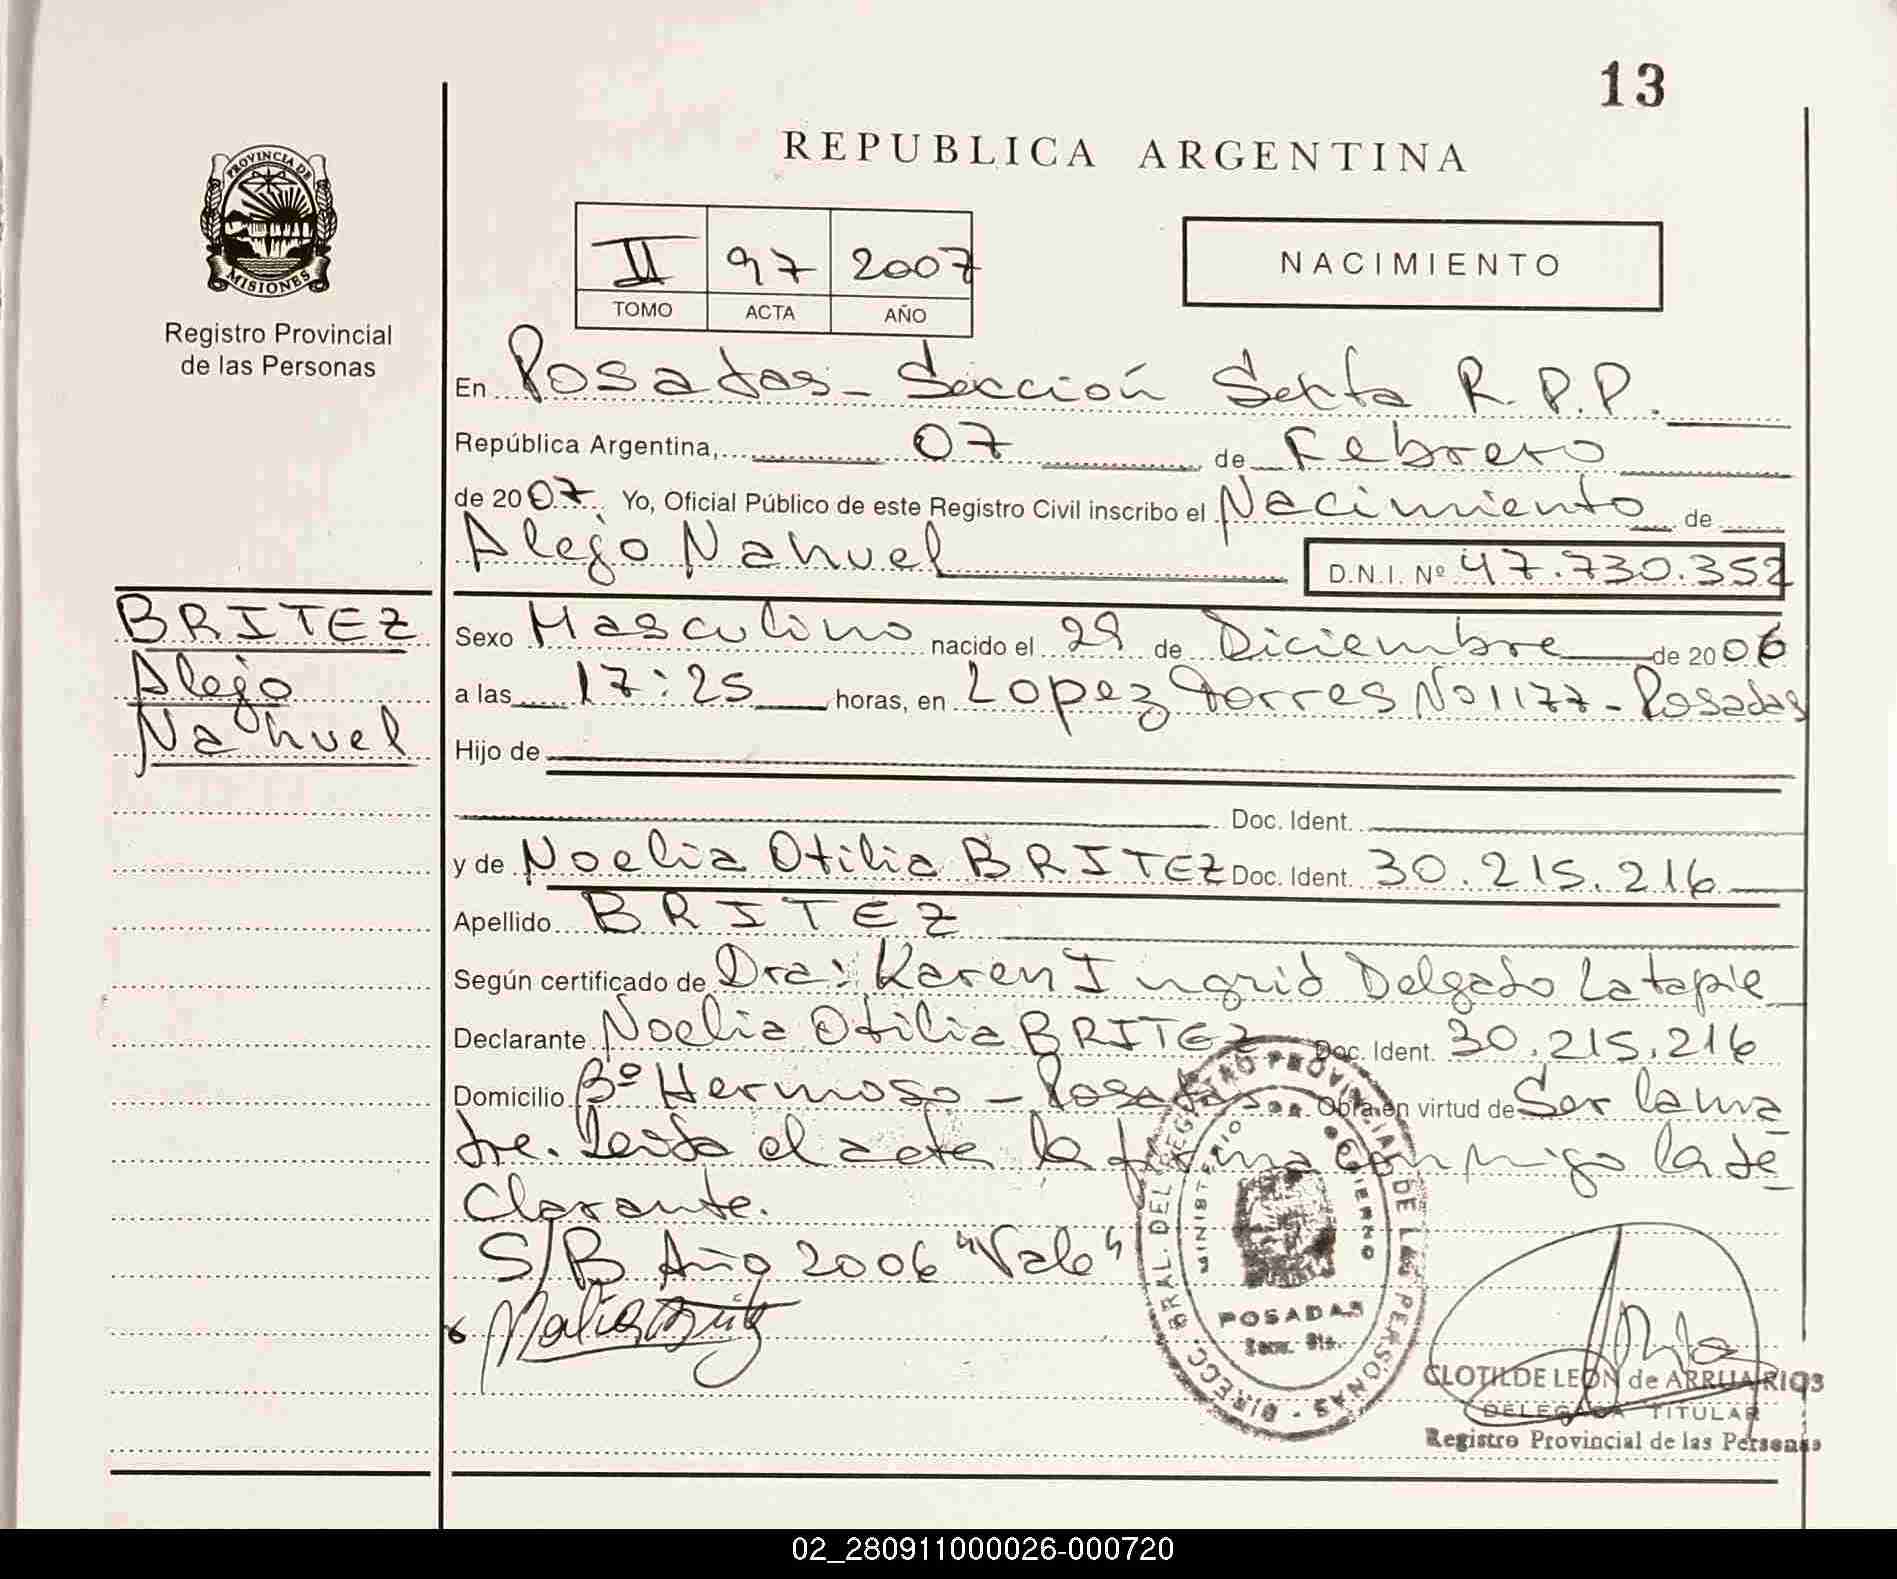 13
REPUBLICA ARGENTINA
PROVINCIA DE
MISIONES
Registro Provincial
de las Personas
II 97 2007
TOMO ACTA AÑO
NACIMIENTO
En Posadas - Sección Sexta R.P.P.
República Argentina, 07 de Febrero
de 2007. Yo, Oficial Público de este Registro Civil inscribo el Nacimiento de
Alejo Nahuel D.N.I. Nº 47.730.352
BRITEZ
Alejo
Nahuel
Sexo Masculino nacido el 29 de Diciembre de 2006
a las 17:25 horas, en Lopez Torres Nº 1177 - Posadas
Hijo de
Doc. Ident.
y de Noelia Otilia BRITEZ Doc. Ident. 30.215.216
Apellido BRITEZ
Según certificado de Dra: Karen Ingrid Delgado Latapie
Declarante Noelia Otilia BRITEZ Doc. Ident. 30.215.216
Domicilio Bº Hermoso - Posadas Obra en virtud de Ser la ma
dre. Leida el acta la firma conmigo la de
clarante.
S/B Año 2006 "Vale"
DIRECC. GRAL. DEL REGISTRO PROVINCIAL DE LAS PERSONAS
MINISTERIO DE GOBIERNO
POSADAS
Secc. 6ta.
CLOTILDE LEON de ARRUA RIOS
DELEGADA TITULAR
Registro Provincial de las Personas
02_280911000026-000720